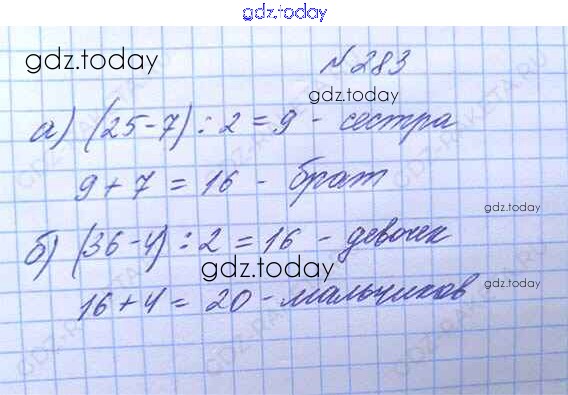 gdz.today
gdz.today
№283
gdz.today
а) (25-7) : 2 = 9 - сестра
9 + 7 = 16 - брат
gdz.today
б) (36-4) : 2 = 16 - девочек
gdz.today
16 + 4 = 20 - мальчиков
gdz.today